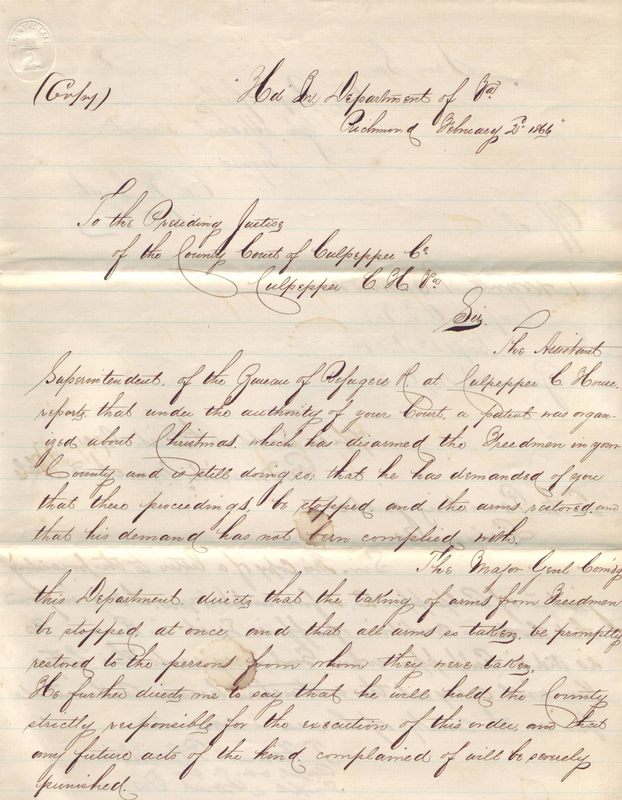 (Copy)
"Hd Qrs Department of Va"
Richmond February 2d 1866"
To the Presiding Justice
of the County Court of Culpepper Co
Culpepper C. H. Va
Sir.
The Assistant
Superintendent, of the Bureau of Refugees &. at Culpepper C. House.
reports that under the authority of your Court, a patrol was organ-
ized about Christmas, which has disarmed the Freedmen in your
County and is still doing so, that he has demanded of you
that these proceedings, be stopped and the arms restored, and
that his demand has not been complied with.
The Major Genl Com'dg
this Department directs that the taking of arms from Freedmen
be stopped, at once, and that all arms so taken, be promptly
restored to the persons from whom they were taken.
He further directs me to say that he will hold the County
strictly responsible for the execution of this order, and that
any future acts of the kind, complained of will be severely
punished.